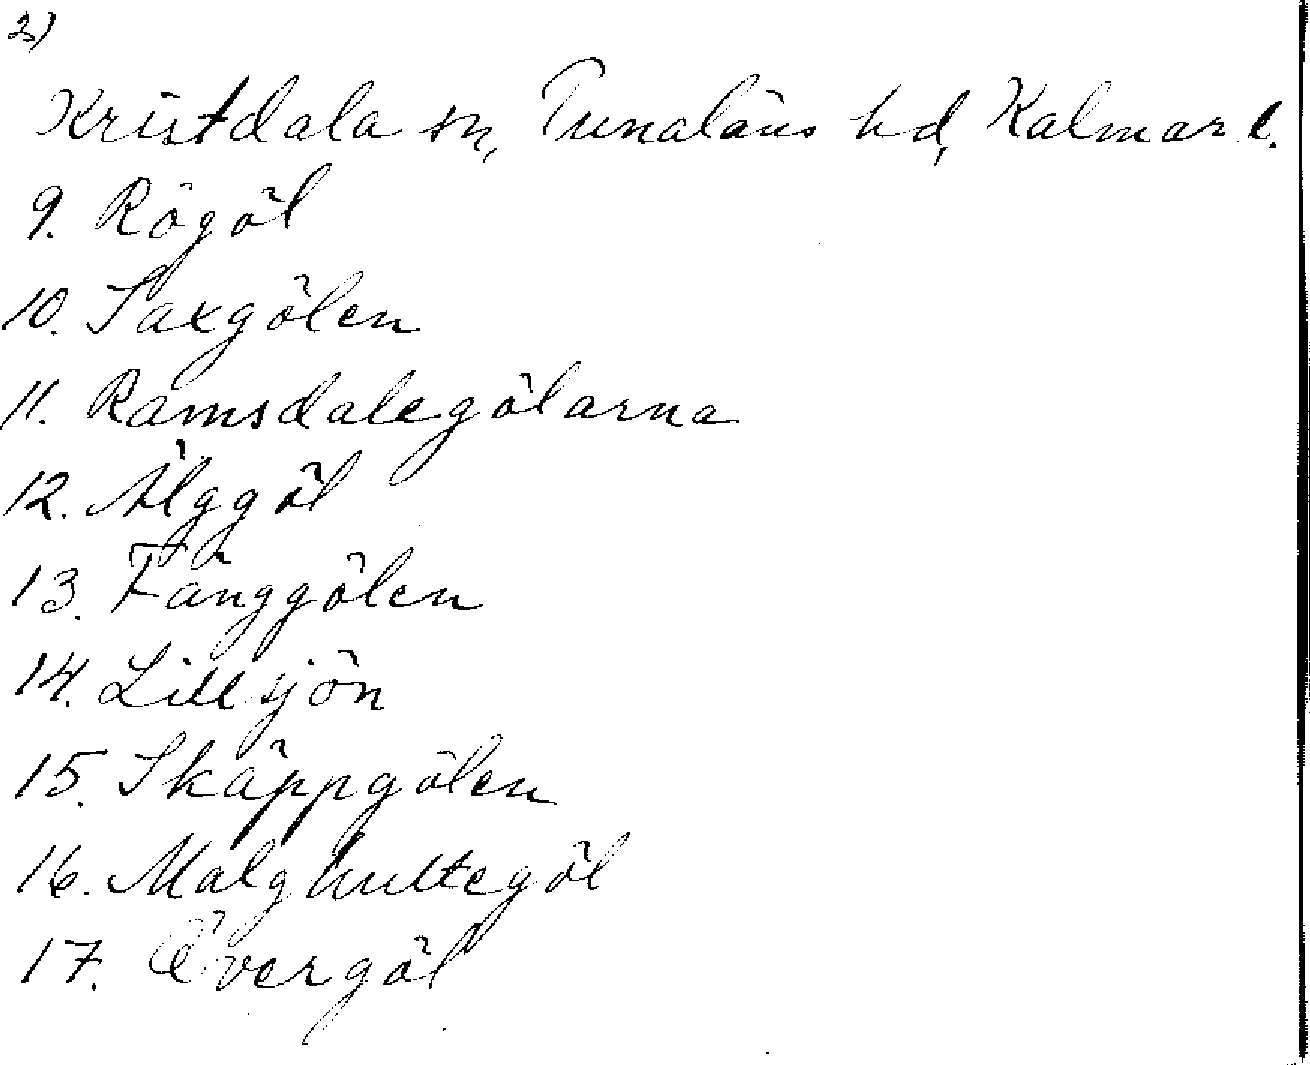 2)
Kristdala sn, Tunaläns hd, Kalmar l.
9. Rögöl
10. Saxgölen
11. Ramsdalegölarna
12. Älggöl
13. Fånggölen
14. Lillsjön
15. Skäppgölen
16. Malghultegöl
17. Övergöl